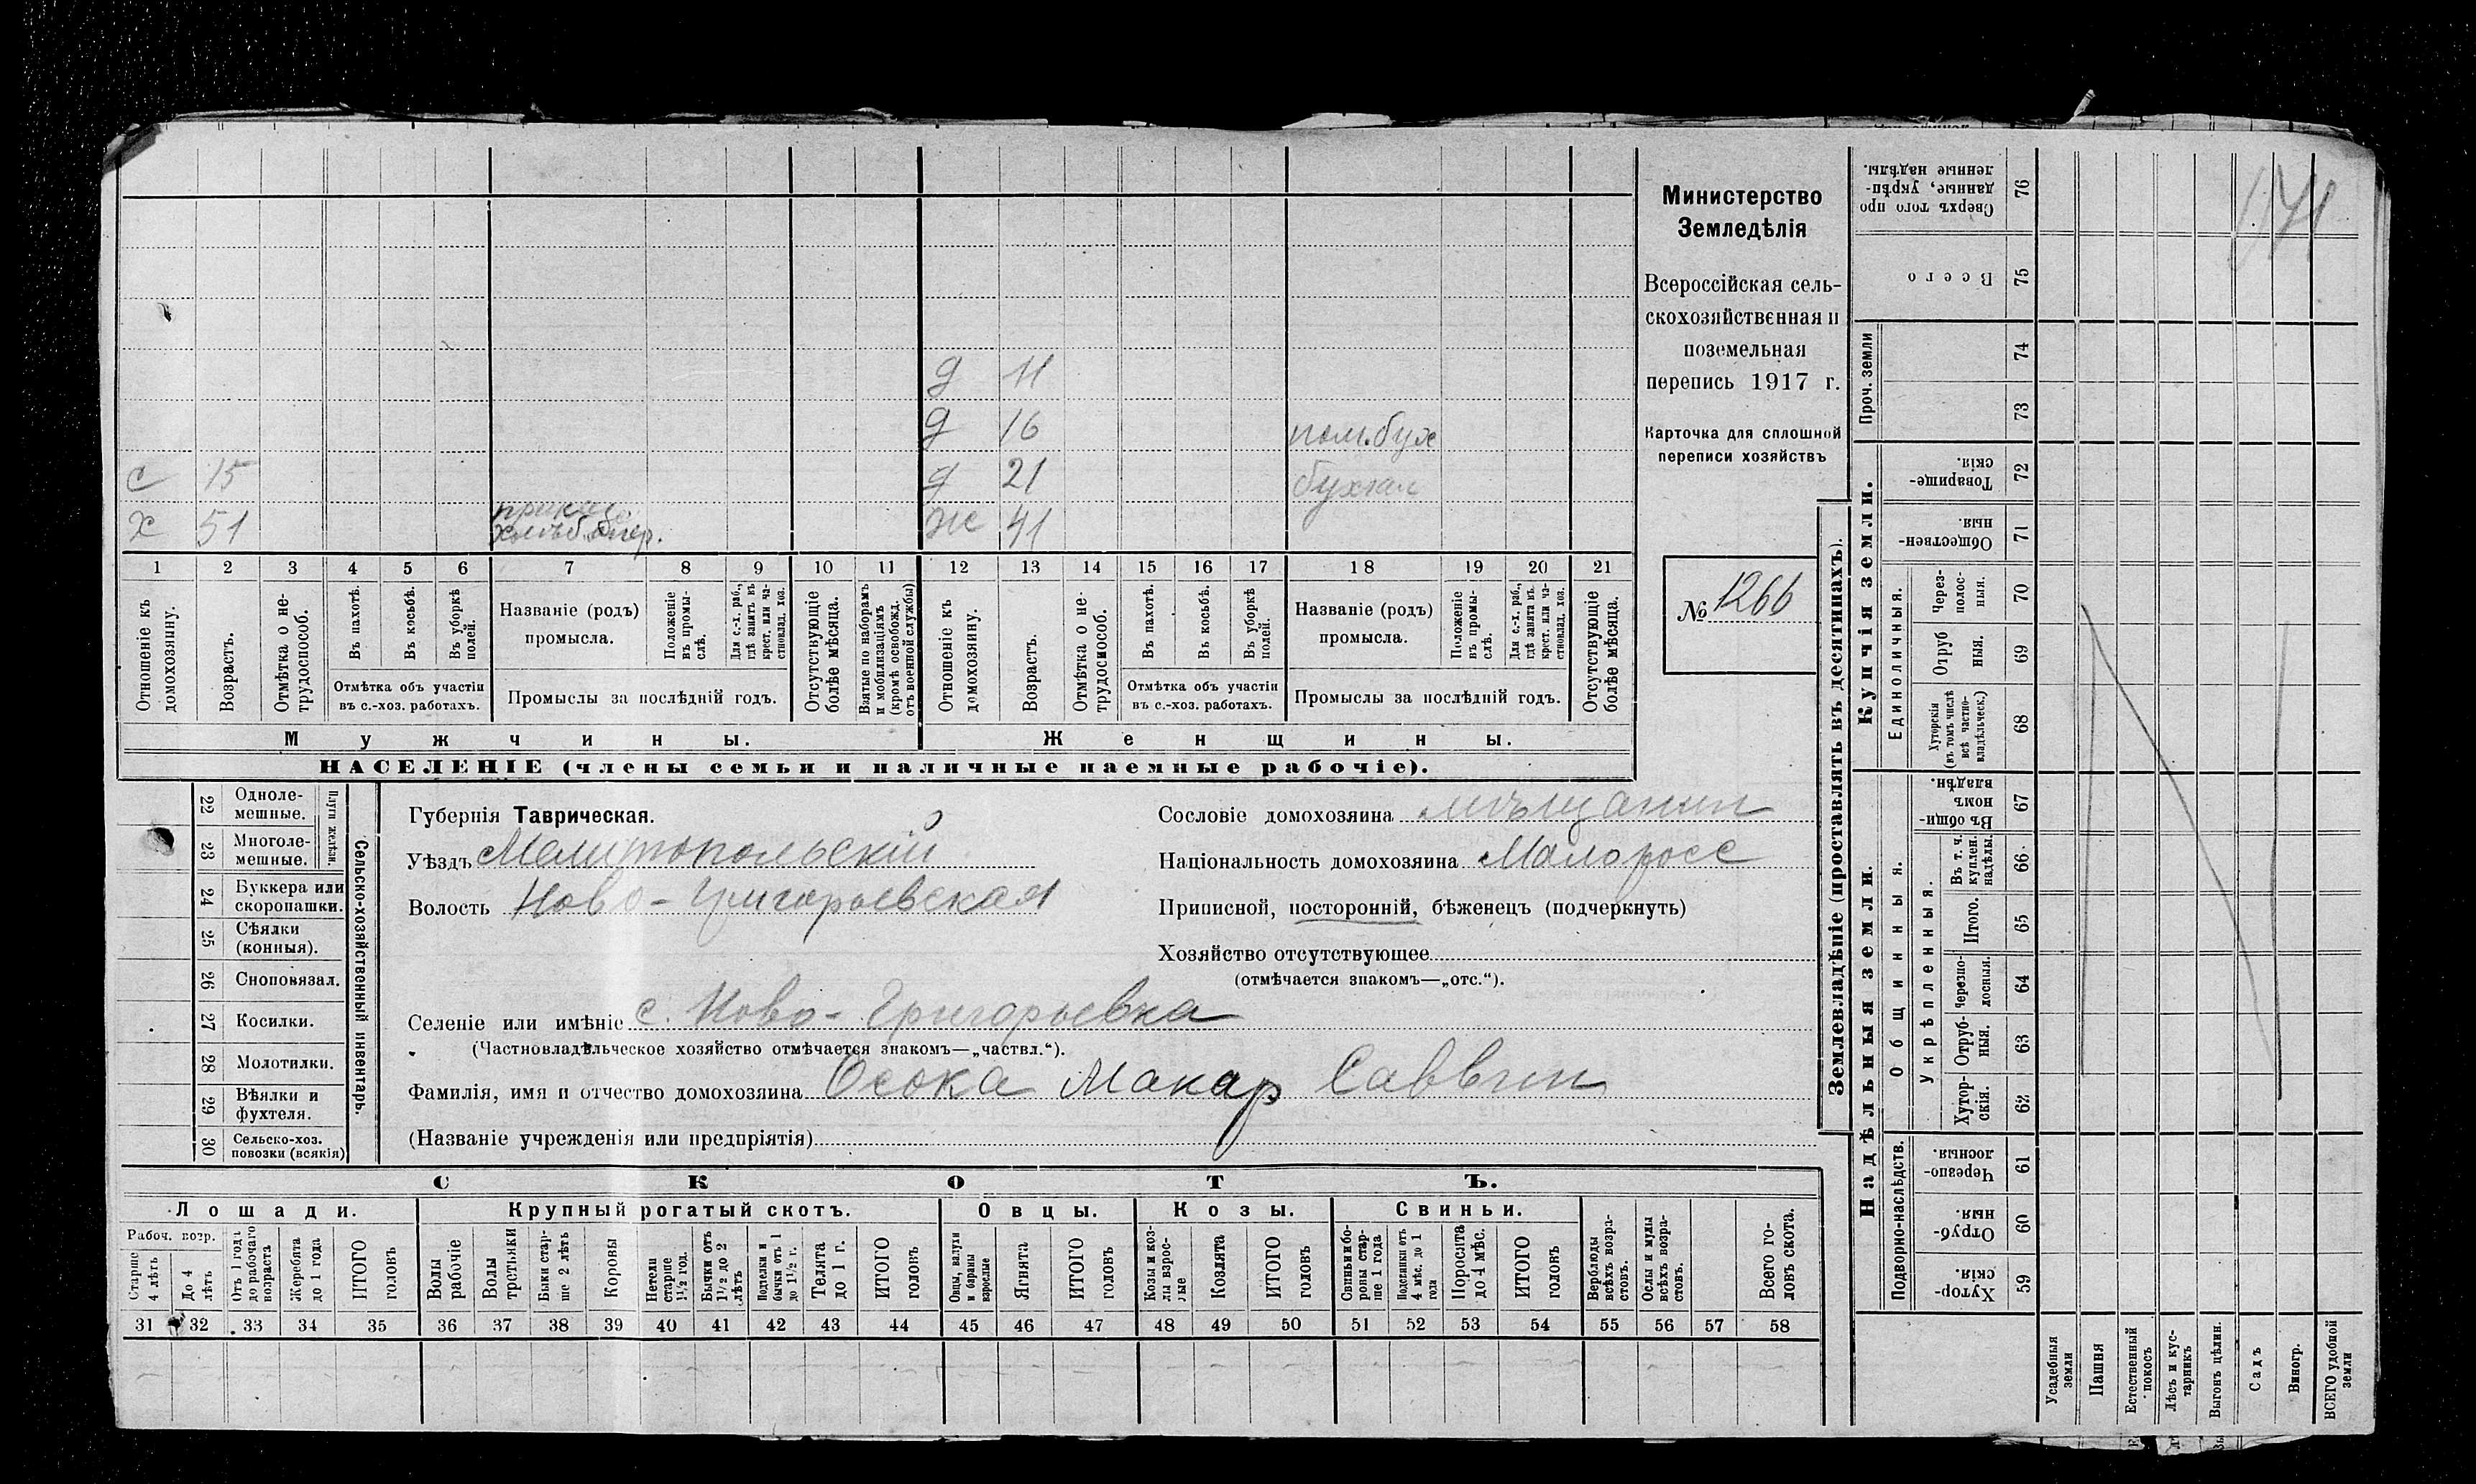 Министерство
Земледѣлія
Всероссійская сель-
скохозяйственная и
поземельная
перепись 1917 г.
Карточка для сплошной
переписи хозяйствъ
№ 1266
д 11
д 16 пом. бух
с 15 д 21
х 51 ж 41
1 2 3 4 5 6 7 8 9 10 11 12 13 14 15 16 17 18 19 20 21
Отношеніе къ домохозяину.
Возрастъ.
Отмѣтка о не-трудоспособ.
Въ пахотѣ.
Въ косьбѣ.
Въ уборкѣ полей.
Отмѣтка объ участіи
въ с.-хоз. работахъ.
Названіе (родъ)
промысла.
Положеніе въ промы-слѣ.
Для с.-х. раб., гдѣ занятъ въ крест. или ча-стновлад. хоз.
Промыслы за послѣдній годъ.
Отсутствующіе болѣе мѣсяца.
Взятые по наборамъ и мобилизаціямъ (кромѣ освобожд. отъ военной службы)
Отношеніе къ домохозяину.
Возрастъ.
Отмѣтка о не-трудоспособ.
Въ пахотѣ.
Въ косьбѣ.
Въ уборкѣ полей.
Отмѣтка объ участіи
въ с.-хоз. работахъ.
Названіе (родъ)
промысла.
Положеніе въ промы-слѣ.
Для с.-х. раб., гдѣ занята въ крест. или ча-стновлад. хоз.
Промыслы за послѣдній годъ.
Отсутствующіе болѣе мѣсяца.
Мужчины. Женщины.
НАСЕЛЕНІЕ (члены семьи и наличные наемные рабочіе).
Сельско-хозяйственный инвентарь.
Плуги желѣзн.
22 Одноле-мешные.
23 Многоле-мешные.
24 Буккера или скоропашки.
25 Сѣялки (конныя).
26 Сноповязал.
27 Косилки.
28 Молотилки.
29 Вѣялки и фухтеля.
30 Сельско-хоз. повозки (всякія)
Губернія Таврическая.
Уѣздъ Мелитопольскій
Волость Ново-Григорьевская
Селеніе или имѣніе с. Ново-Григорьевка
(Частновладѣльческое хозяйство отмѣчается знакомъ—„частвл.“).
Фамилія, имя и отчество домохозяина Осока Макар Саввин
(Названіе учрежденія или предпріятія)
Сословіе домохозяина мѣщанин
Національность домохозяина Малоросс
Приписной, посторонній, бѣженецъ (подчеркнуть)
Хозяйство отсутствующее
(отмѣчается знакомъ—„отс.“).
СКОТЪ.
Лошади. Крупный рогатый скотъ. Овцы. Козы. Свиньи.
Рабоч. возр.
Старше 4 лѣтъ
До 4 лѣтъ
Отъ 1 года до рабочаго возраста
Жеребята до 1 года
ИТОГО головъ
Волы рабочіе
Волы гостьяки
Быки стар-ше 2 лѣтъ
Коровы
Нетели старше 1½ год.
Бычки отъ 1½ до 2 лѣтъ
Подтелки и бычки отъ 1 до 1½ г.
Телята до 1 г.
ИТОГО головъ
Овцы, валухи и бараны взрослые
Ягнята
ИТОГО головъ
Козы и коз-лы взрос-лые
Козлята
ИТОГО головъ
Свиньи и бо-ровы стар-ше 1 года
Подсвинки отъ 4 мѣс. до 1 года
Поросята до 4 мѣс.
ИТОГО головъ
Верблюды всѣхъ возра-стовъ.
Ослы и мулы всѣхъ возра-стовъ.
Всего го-ловъ скота.
31 32 33 34 35 36 37 38 39 40 41 42 43 44 45 46 47 48 49 50 51 52 53 54 55 56 57 58
Землевладѣніе (проставлять въ десятинахъ).
Купчія земли.
Надѣльныя земли.
Сверхъ того про-данные, укрѣп-ленные надѣлы. 76
Всего 75
Проч. земли 74
73
Товарище-скія. 72
Обществен-ныя 71
Единоличныя.
Через-полос-ныя. 70
Отруб-ныя. 69
Хуторскія (въ томъ числѣ всѣ частно-владѣльческ.) 68
Общинныя.
Въ общи-номъ владѣн. 67
Укрѣпленныя.
Въ т. ч. куплен. надѣлы. 66
Итого. 65
Черезпо-лосныя. 64
Отруб-ныя. 63
Хутор-скія. 62
Подворно-наслѣдств.
Черезпо-лосныя. 61
Отруб-ныя. 60
Хутор-скія. 59
Усадебныя земли
Пашня
Естественный покосъ
Лѣсъ и кус-тарникъ
Выгонъ цѣлин.
Садъ
Виногр.
ВСЕГО удобной земли